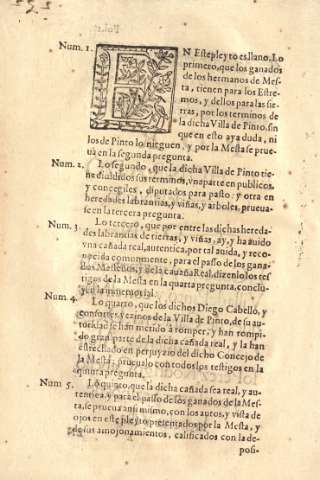 Num. 1. EN Este pleyto es llano. Lo
primero, que los ganados
de los hermanos de Mes-
ta, tienen para los Estre-
mos, y dellos para las sie-
rras, por los terminos de
la dicha Villa de Pinto, sin
que en esto aya duda, ni
los de Pinto lo nieguen, y por la Mesta se prue-
ua en la segunda pregunta.
Num. 2. Lo segundo, que la dicha Villa de Pinto tie-
ne diuididos sus terminos, vna parte en publicos,
y concegiles, diputados para pasto, y otra en
heredades labrantias, y viñas, y arboles, prueua-
se en la tercera pregunta.
Num. 3. Lo tercero, que por entre las dichas hereda-
des labrancias de tierras, y viñas, ay, y ha auido
vna cañada real, autentica, por tal auida, y reco-
nocida comunmente, para el passo de los gana-
dos Mesteños, y de la cauaña Real, dizenlo los tes-
tigos de la Mesta en la quarta pregunta, conclu-
yen la inmemorial.
Num. 4. Lo quarto, que los dichos Diego Cabello, y
consortes, vezinos de la Villa de Pinto, de su au-
toridad se han metido à romper, y han rompi-
do gran parte de la dicha cañada real, y la han
estrechado en perjuyzio del dicho Concejo de
la Mesta, prueualo con todos los testigos en la
quinta pregunta.
Num. 5. Lo quinto, que la dicha cañada sea real, y au-
tentica, y para el passo de los ganados de la Mes-
ta, se prueua ansimismo, con los autos, y vista de
ojos en este pleyto presentados por la Mesta, y
de sus amojonamientos, calificados con la de-
posi-